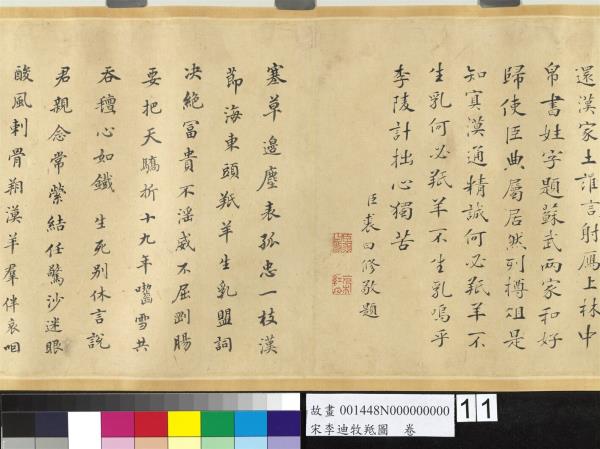 還漢家土誰言射鴈上林中
帛書姓字題蘇武兩家和好
歸使臣典屬居然列樽俎是
知冥漠通精誠何必羝羊不
生乳何必羝羊不生乳嗚乎
李陵計拙心獨苦
臣裘曰修敬題
塞草邊塵表孤忠一枝漢
節海東頭羝羊生乳盟詞
决絕富貴不滛威不屈剛腸
要把天驕折十九年囓雪共
吞氊心如鐵 生死別休言說
君親念常縈結任驚沙迷眼
酸風刺骨朔漠羊羣伴哀咽
故畫 001448N000000000
宋李迪牧羝圖 卷
11